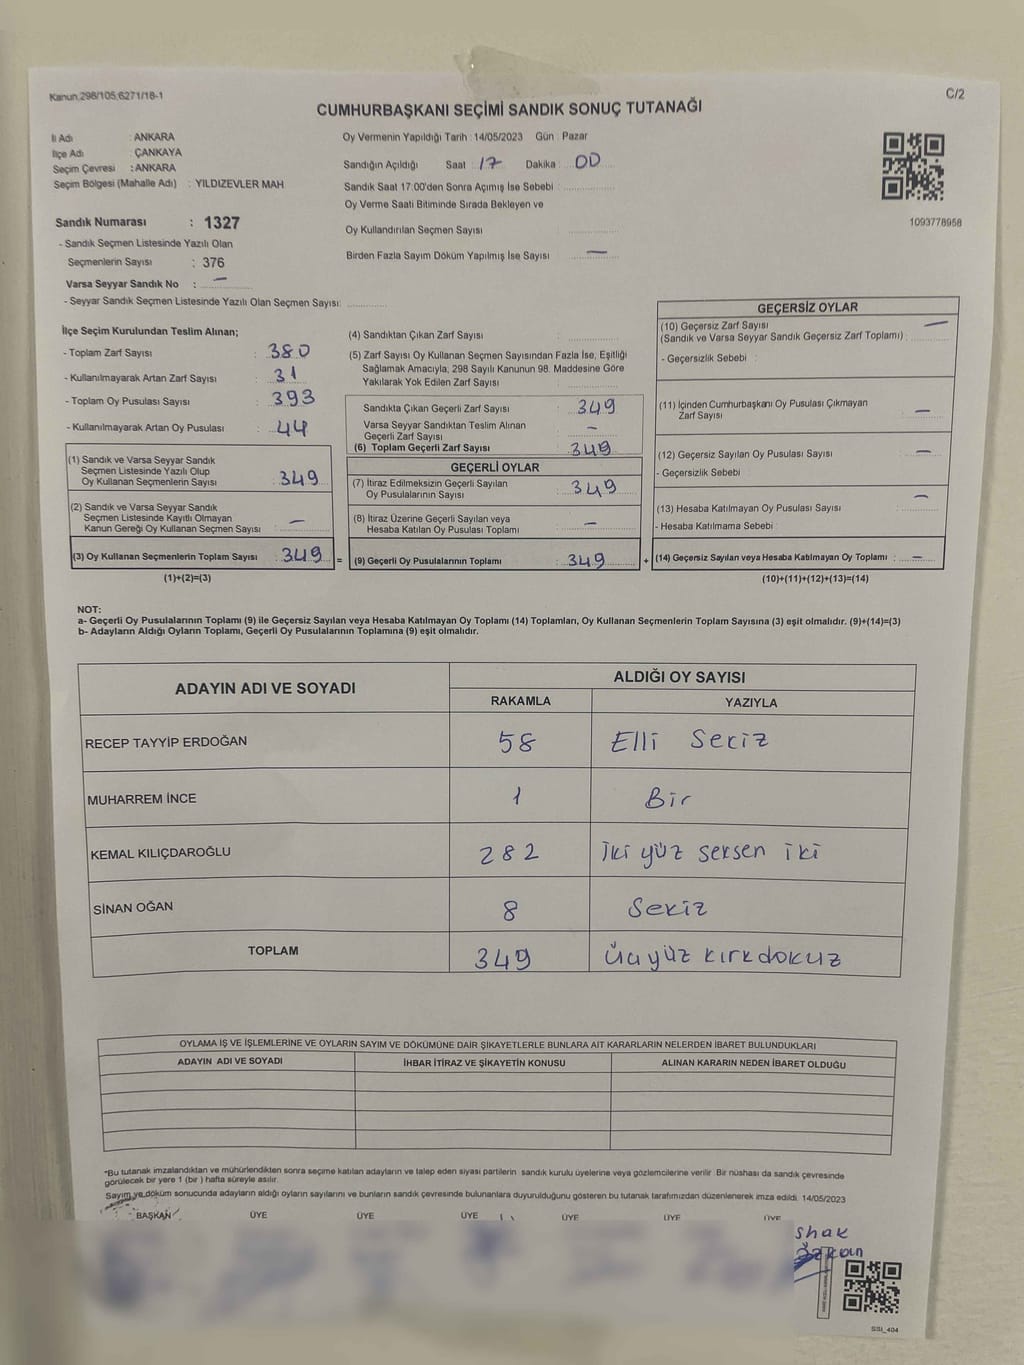 Kanun,298/105,6271/18-1
C/2
CUMHURBAŞKANI SEÇİMİ SANDIK SONUÇ TUTANAĞI
İl Adı : ANKARA
İlçe Adı : ÇANKAYA
Seçim Çevresi : ANKARA
Seçim Bölgesi (Mahalle Adı) : YILDIZEVLER MAH
Oy Vermenin Yapıldığı Tarih : 14/05/2023 Gün : Pazar
Sandığın Açıldığı Saat : 17 Dakika : 00
Sandık Saat 17.00'den Sonra Açımış İse Sebebi :
Oy Verme Saati Bitiminde Sırada Bekleyen ve
Oy Kullandırılan Seçmen Sayısı
Birden Fazla Sayım Döküm Yapılmış İse Sayısı —
1093778958
Sandık Numarası : 1327
- Sandık Seçmen Listesinde Yazılı Olan
Seçmenlerin Sayısı : 376
Varsa Seyyar Sandık No : —
- Seyyar Sandık Seçmen Listesinde Yazılı Olan Seçmen Sayısı:
İlçe Seçim Kurulundan Teslim Alınan;
- Toplam Zarf Sayısı : 380
- Kullanılmayarak Artan Zarf Sayısı : 31
- Toplam Oy Pusulası Sayısı : 393
- Kullanılmayarak Artan Oy Pusulası : 44
(1) Sandık ve Varsa Seyyar Sandık
Seçmen Listesinde Yazılı Olup
Oy Kullanan Seçmenlerin Sayısı : 349
(2) Sandık ve Varsa Seyyar Sandık
Seçmen Listesinde Kayıtlı Olmayan
Kanun Gereği Oy Kullanan Seçmen Sayısı : —
(3) Oy Kullanan Seçmenlerin Toplam Sayısı : 349 =
(1)+(2)=(3)
(4) Sandıktan Çıkan Zarf Sayısı
(5) Zarf Sayısı Oy Kullanan Seçmen Sayısından Fazla İse, Eşitliği
Sağlamak Amacıyla, 298 Sayılı Kanunun 98. Maddesine Göre
Yakılarak Yok Edilen Zarf Sayısı :
Sandıkta Çıkan Geçerli Zarf Sayısı : 349
Varsa Seyyar Sandıktan Teslim Alınan
Geçerli Zarf Sayısı : —
(6) Toplam Geçerli Zarf Sayısı : 349
GEÇERLİ OYLAR
(7) İtiraz Edilmeksizin Geçerli Sayılan
Oy Pusulalarının Sayısı : 349
(8) İtiraz Üzerine Geçerli Sayılan veya
Hesaba Katılan Oy Pusulası Toplamı : —
(9) Geçerli Oy Pusulalarının Toplamı : 349 +
GEÇERSİZ OYLAR
(10) Geçersiz Zarf Sayısı
(Sandık ve Varsa Seyyar Sandık Geçersiz Zarf Toplamı) : —
- Geçersizlik Sebebi :
(11) İçinden Cumhurbaşkanı Oy Pusulası Çıkmayan
Zarf Sayısı : —
(12) Geçersiz Sayılan Oy Pusulası Sayısı : —
- Geçersizlik Sebebi :
(13) Hesaba Katılmayan Oy Pusulası Sayısı : —
- Hesaba Katılmama Sebebi :
(14) Geçersiz Sayılan veya Hesaba Katılmayan Oy Toplamı : —
(10)+(11)+(12)+(13)=(14)
NOT:
a- Geçerli Oy Pusulalarının Toplamı (9) ile Geçersiz Sayılan veya Hesaba Katılmayan Oy Toplamı (14) Toplamları, Oy Kullanan Seçmenlerin Toplam Sayısına (3) eşit olmalıdır. (9)+(14)=(3)
b- Adayların Aldığı Oyların Toplamı, Geçerli Oy Pusulalarının Toplamına (9) eşit olmalıdır.
ADAYIN ADI VE SOYADI ALDIĞI OY SAYISI
RAKAMLA YAZIYLA
RECEP TAYYİP ERDOĞAN 58 Elli Sekiz
MUHARREM İNCE 1 Bir
KEMAL KILIÇDAROĞLU 282 İki yüz seksen iki
SİNAN OĞAN 8 Sekiz
TOPLAM 349 Üçyüz kırkdokuz
OYLAMA İŞ VE İŞLEMLERİNE VE OYLARIN SAYIM VE DÖKÜMÜNE DAİR ŞİKAYETLERLE BUNLARA AİT KARARLARIN NELERDEN İBARET BULUNDUKLARI
ADAYIN ADI VE SOYADI İHBAR İTİRAZ VE ŞİKAYETİN KONUSU ALINAN KARARIN NEDEN İBARET OLDUĞU
*Bu tutanak imzalandıktan ve mühürlendikten sonra seçime katılan adayların ve talep eden siyasi partilerin sandık kurulu üyelerine veya gözlemcilerine verilir. Bir nüshası da sandık çevresinde
görülecek bir yere 1 (bir ) hafta süreyle asılır.
Sayım ve döküm sonucunda adayların aldığı oyların sayılarını ve bunların sandık çevresinde bulunanlara duyurulduğunu gösteren bu tutanak tarafımızdan düzenlenerek imza edildi. 14/05/2023
BAŞKAN ÜYE ÜYE ÜYE ÜYE ÜYE ÜYE
shak
Özkan
SSI_404